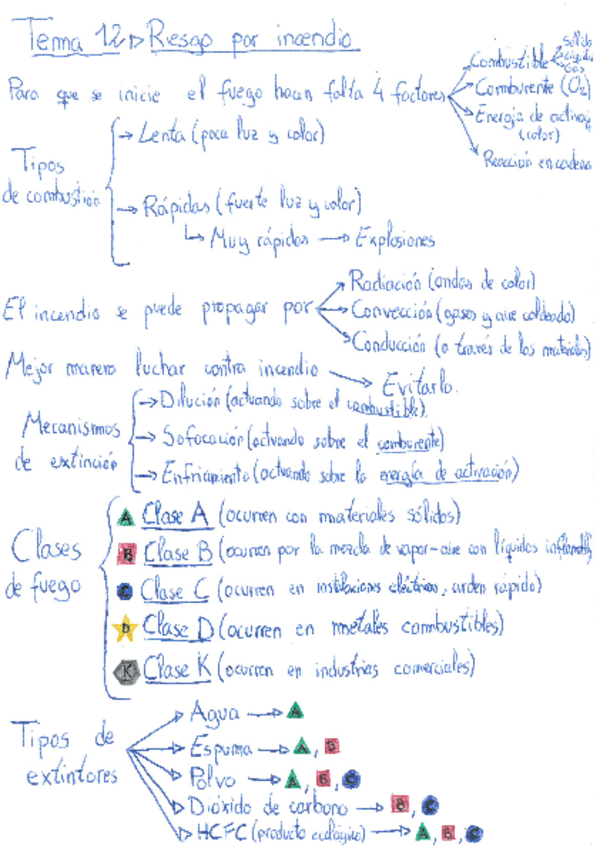 Tema 12 → Riesgo por incendio
Para que se inicie el fuego hacen falta 4 factores
Combustible
Sólido
Líquido
Gas
Comburente (O₂)
Energía de activa
(calor)
Reacción en cadena
Tipos
de combustión
→ Lenta (poca luz y calor)
→ Rápidas (fuerte luz y calor)
↳ Muy rápidas → Explosiones
El incendio se puede propagar por
Radiación (ondas de calor)
Convección (gases y aire caldeado)
Conducción (a través de los materiales)
Mejor manera luchar contra incendio → Evitarlo.
Mecanismos
de extinción
→ Dilución (actuando sobre el combustible).
→ Sofocación (actuando sobre el comburente)
→ Enfriamiento (actuando sobre la energía de activación)
Clases
de fuego
A Clase A (ocurren con materiales sólidos)
B Clase B (ocurren por la mezcla de vapor-aire con líquidos
C Clase C (ocurren en instalaciones eléctricas, arden rápido)
D Clase D (ocurren en metales combustibles)
K Clase K (ocurren en industrias comerciales)
Tipos de
extintores
Agua → A
Espuma → A, B
Polvo → A, B, C
Dióxido de carbono → B, C
HCFC (producto ecológico) → A, B, C